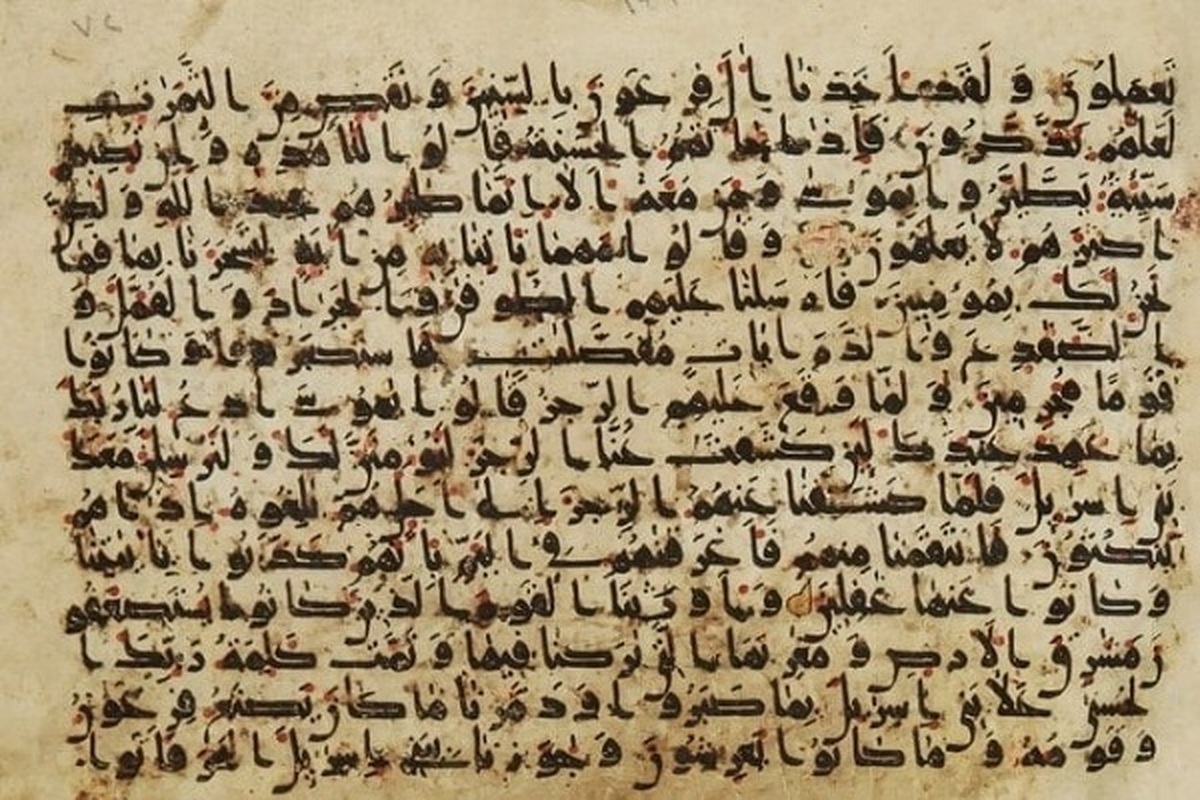 تعملون ولقد اخذنا ال فرعون بالسنين ونقص من الثمرت
لعلهم يذكرون فاذا جاتهم الحسنة قالوا لنا هذه وان تصبهم
سيئة يطيروا بموسى ومن معه الا انما طيرهم عند الله ولكن
اكثرهم لا يعلمون وقالوا مهما تاتنا به من اية لتسحرنا بها فما
نحن لك بمومنين فارسلنا عليهم الطوفان والجراد والقمل و
الضفدع والدم ايات مفصلت فاستكبروا وكانوا
قوما مجرمين ولما وقع عليهم الرجز قالوا يموسى ادع لنا ربك
بما عهد عندك لئن كشفت عنا الرجز لنومنن لك ولنرسلن معك
بني اسريل فلما كشفنا عنهم الرجز الى اجل هم بلغوه اذا هم
ينكثون فانتقمنا منهم فاغرقنهم في اليم بانهم كذبوا باياتنا
وكانوا عنها غفلين واورثنا القوم الذين كانوا يستضعفو
ن مشرق الارض ومغربها التي بركنا فيها وتمت كلمة ربك ا
لحسنى علا بني اسريل بما صبروا ودمرنا ما كان يصنع فرعون
وقومه وما كانوا يعرشون وجوزنا ببني اسريل البحر فاتوا